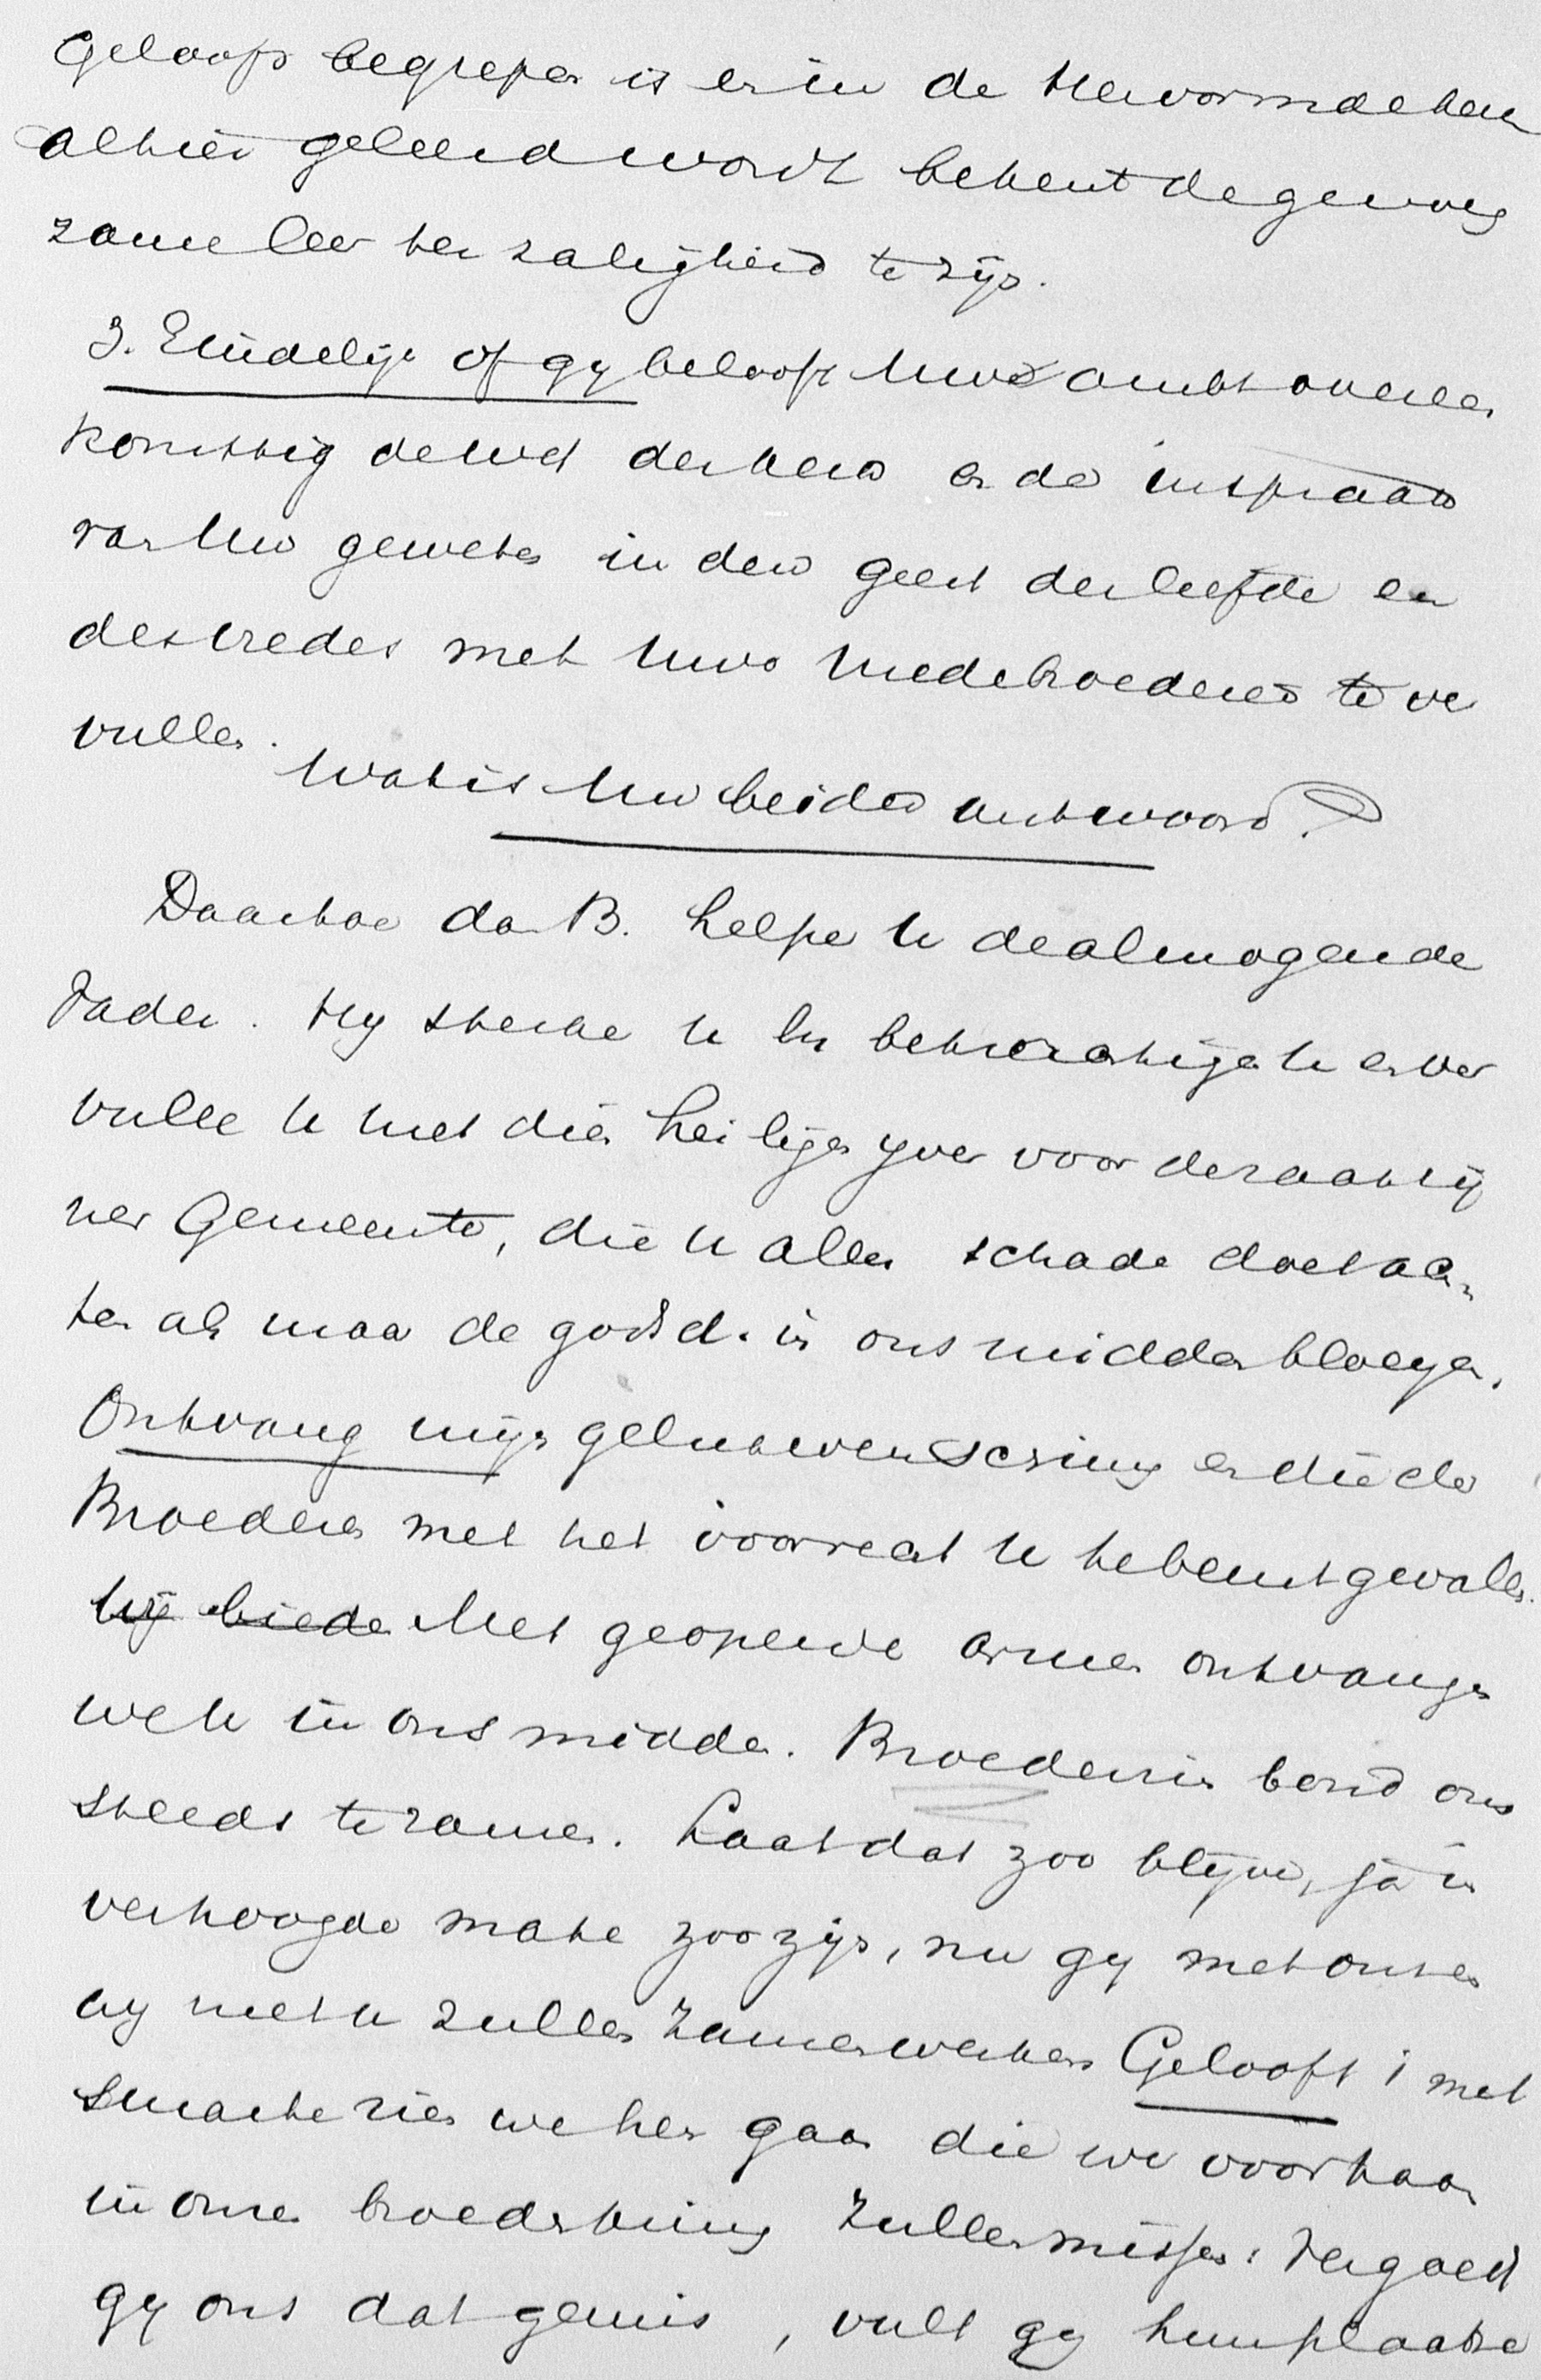 Geloofs begrepen is en in de Hervormde kerk
alhier geleerd wordt bekent de genoeg
zame leer der zaligheid te zijn.
3. Eindelijk of gy belooft Uwe ambt overeen
komstig de wet der kerk en de inspraak
van Uw geweten in den geest der liefde en
des vredes met Uwe medebroeders te ver
vullen.
Wat is Uw beider antwoord?
Daartoe dan B. helpe U de almogende
Vader. Hy sterke U en bekrachtige U en ver
vulle U met dien heiligen yver voor de zaak zij
ner Gemeente, die U alles schade doet ach
ten als maar de godsd. in ons midden bloeye.
Ontvang mijn gelukwensching en die der
Broeders met het voorrecht U te beurt gevallen.
Wij bieden Met geopende armen ontvangen
we U in ons midden. Broedermin bond ons
steeds te zamen. Laat dat zoo blijven, ja in
verhoogde mate zoo zijn, nu gy met ons en
wy met U zullen zamenwerken Gelooft i met
smarte zien we hen gaan die we voortaan
in onze broederkring zullen missen. Vergoed
gy ons dat gemis, vult gy hun plaatse